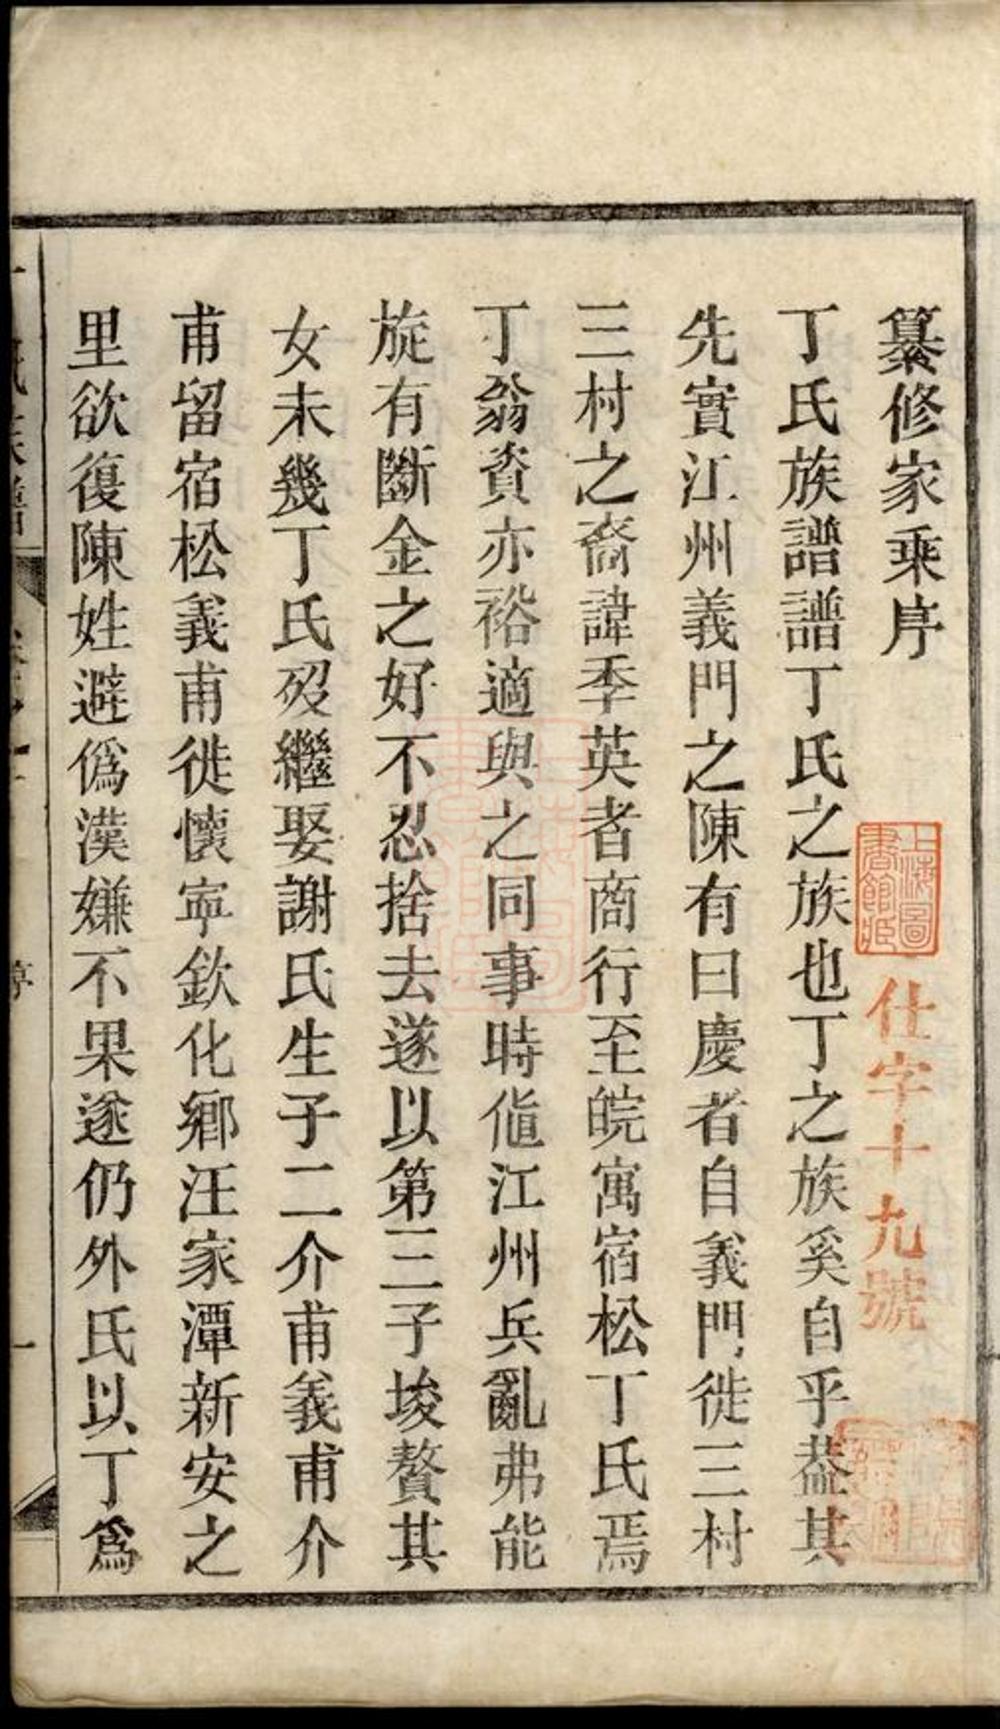 纂修家乘序
丁氏族譜譜丁氏之族也丁之族奚自乎葢其
先實江州義門之陳有曰慶者自義門徙三村
三村之裔諱季英者商行至皖寓宿松丁氏焉
丁翁資亦裕適與之同事時値江州兵亂弗能
旋有斷金之好不忍捨去遂以第三子埈贅其
女未幾丁氏歿繼娶謝氏生子二介甫義甫介
甫留宿松義甫徙懷寧欽化鄉汪家潭新安之
里欲復陳姓避僞漢嫌不果遂仍外氏以丁爲
上海圖書館藏
仕字十九號